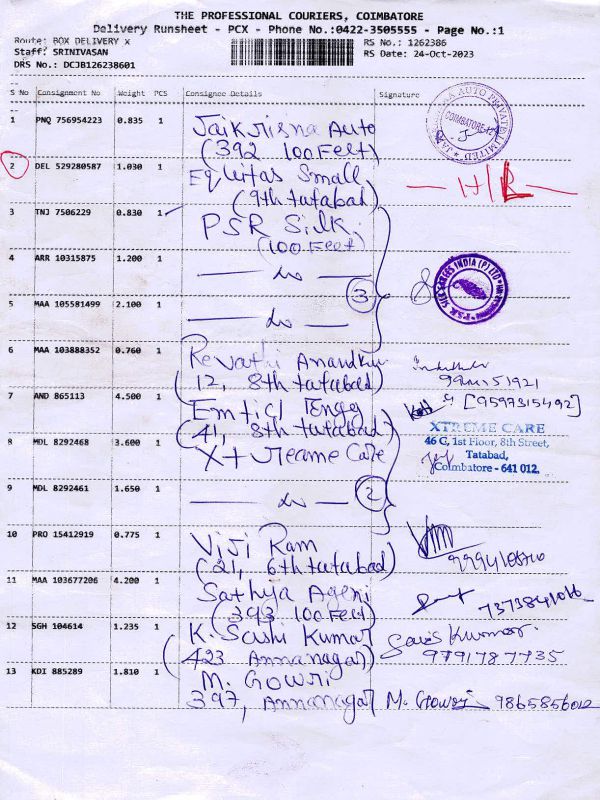 THE PROFESSIONAL COURIERS, COIMBATORE
Delivery Runsheet - PCX - Phone No.:0422-3505555 - Page No.:1
Route: BOX DELIVERY x
Staff: SRINIVASAN
DRS No.: DCJB126238601
RS No.: 1262386
RS Date: 24-Oct-2023
S No Consignment No Weight PCS Consignee Details Signature
1 PNQ 756954223 0.835 1 Jaikrisna Auto
(392 100Feet)
COIMBATORE-12
2 DEL 529280587 1.030 1 Equitas Small
(9th tatabad)
3 TNJ 7506229 0.830 1 PSR Silk
(100 Feet)
4 ARR 10315875 1.200 1 — do —
3
5 MAA 105581499 2.100 1 — do —
6 MAA 103888352 0.760 1 Revathi
(12, 8th tatabad)
7 AND 865113 4.500 1
[9597315492]
(41, 8th tatabad)
XTREME CARE
46 C, 1st Floor, 8th Street,
Tatabad,
Coimbatore - 641 012.
8 MDL 8292468 3.600 1 Xtreame Care
9 MDL 8292461 1.650 1 — do —
2
10 PRO 15412919 0.775 1 Viji Ram
(21, 6th tatabad)
11 MAA 103677206 4.200 1 Sathya
(393 100 Feet)
12 SGH 104614 1.235 1 K. Sashi Kumar
(423 Annanagar)
9791787735
13 KDI 885289 1.810 1 M. Gowri
397, Annanagar M. Gowri 9865856012